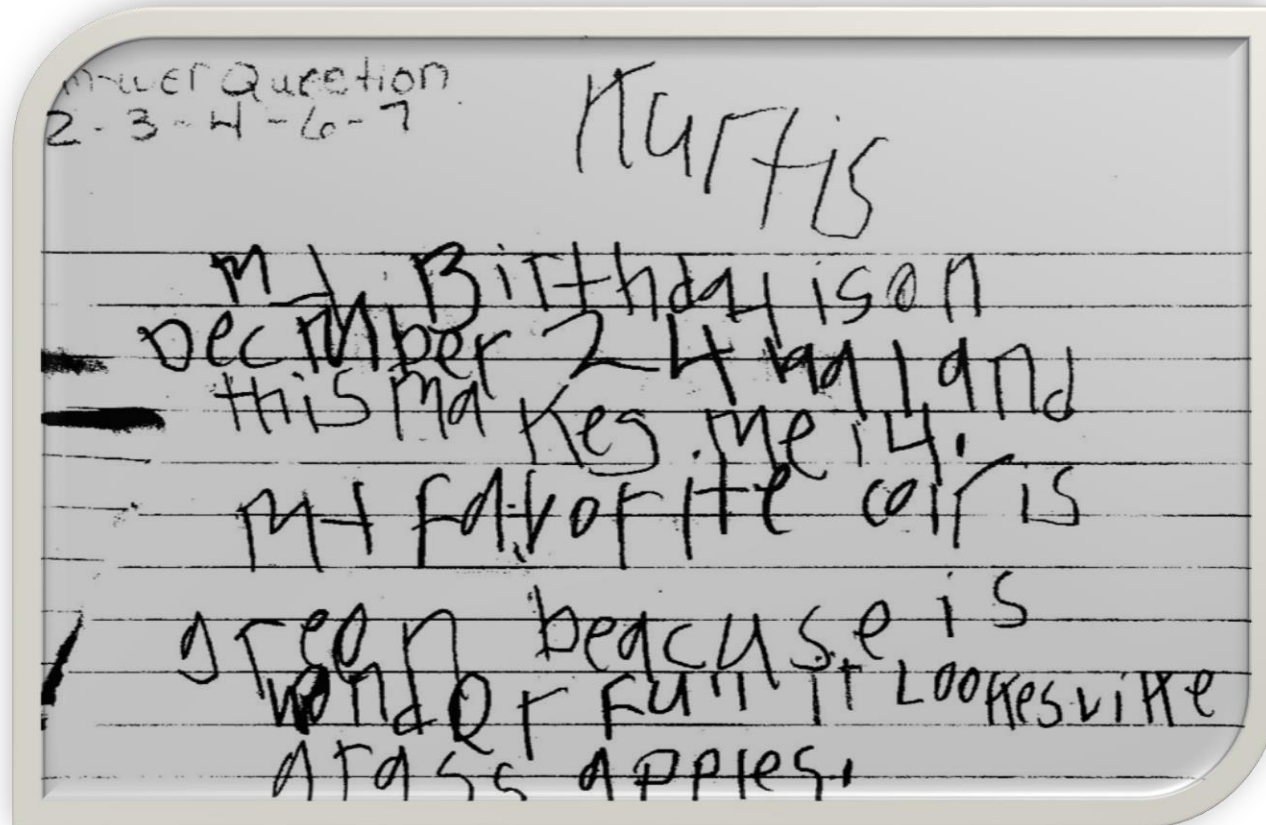 Question
2-3-4-6-7
Kurtis
My Birthday is on
December 24 and
this makes me 14.
My favorite colr is
green beacuse is
wonderfull it Lookes
grass apples.